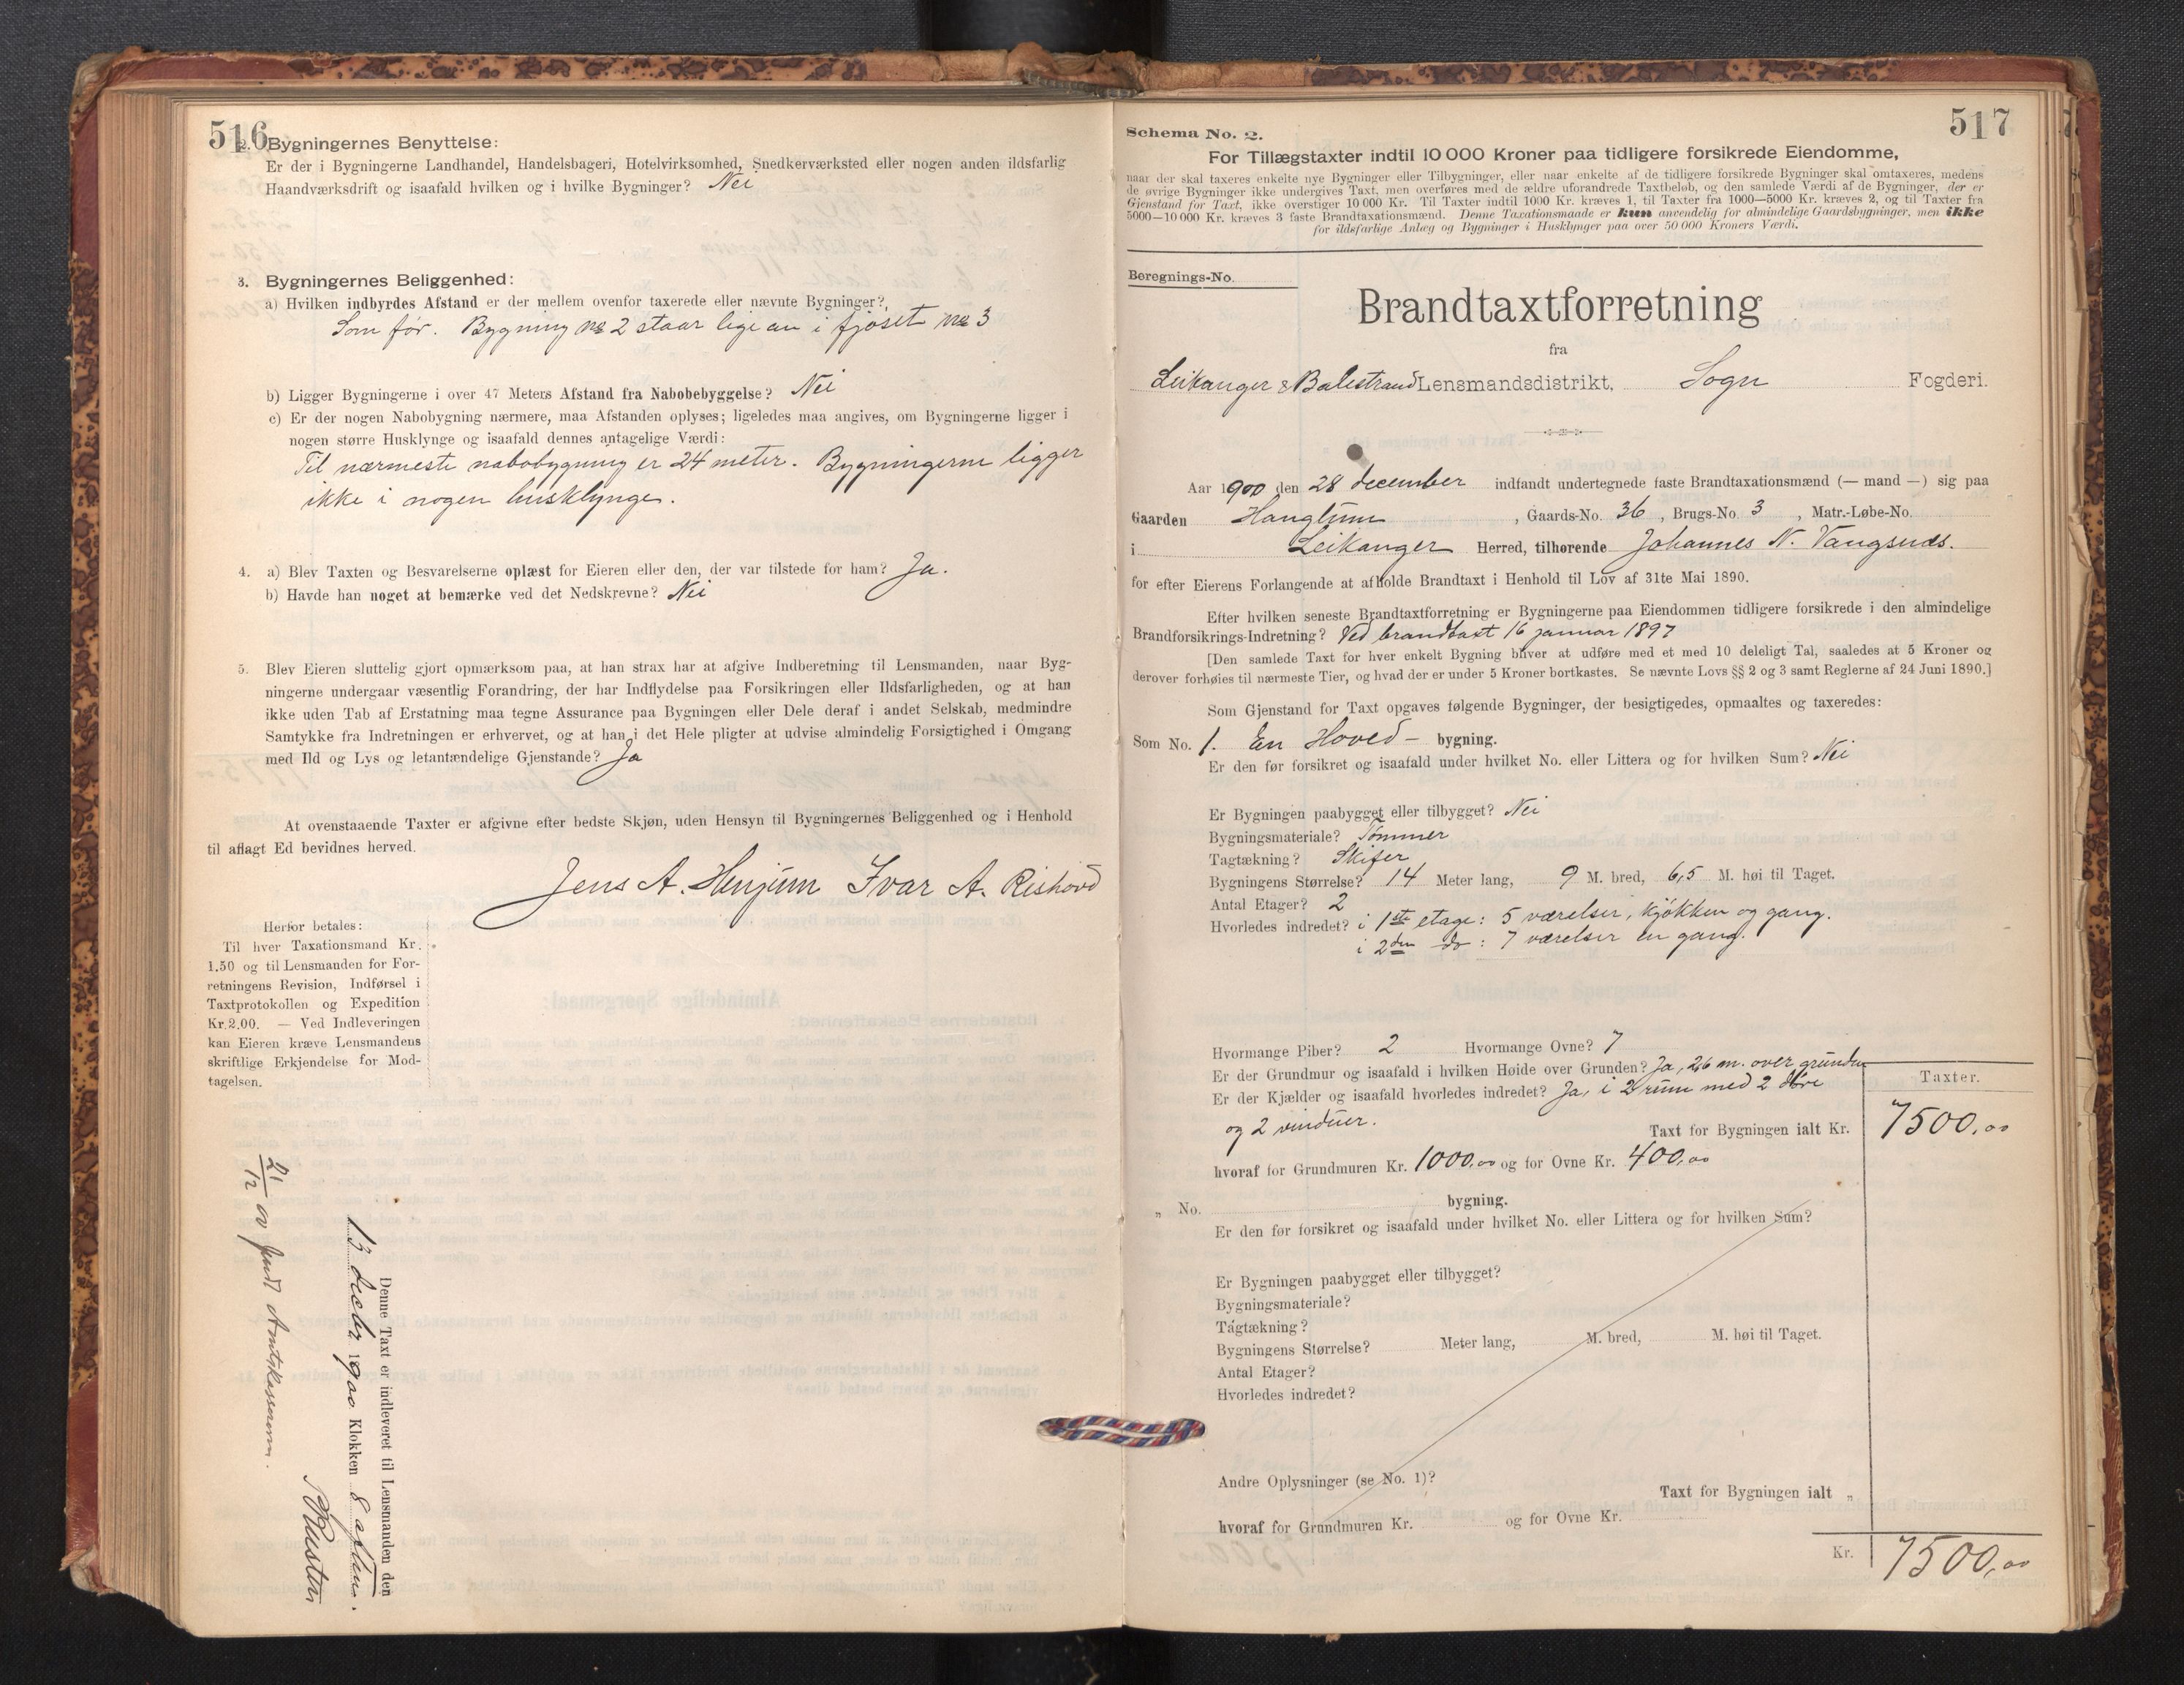 516
2. Bygningernes Benyttelse:
Er der i Bygningerne Landhandel, Handelsbageri, Hotelvirksomhed, Snedkerværksted eller nogen anden ildsfarlig
Haandværksdrift og isaafald hvilken og i hvilke Bygninger? Nei
3. Bygningernes Beliggenhed:
a) Hvilken indbyrdes Afstand er der mellem ovenfor taxerede eller nævnte Bygninger?
Som før. Bygning no 2 staar lige an i fjøset no 3
b) Ligger Bygningerne i over 47 Meters Afstand fra Nabobebyggelse? Nei
c) Er der nogen Nabobygning nærmere, maa Afstanden oplyses; ligeledes maa angives, om Bygningerne ligger i
nogen større Husklynge og isaafald dennes antagelige Værdi:
Til nærmeste nabobygning er 24 meter. Bygningerne ligger
ikke i nogen husklynge.
4. a) Blev Taxten og Besvarelserne oplæst for Eieren eller den, der var tilstede for ham? Ja.
b) Havde han noget at bemærke ved det Nedskrevne? Nei
5. Blev Eieren sluttelig gjort opmærksom paa, at han strax har at afgive Indberetning til Lensmanden, naar Byg-
ningerne undergaar væsentlig Forandring, der har Indflydelse paa Forsikringen eller Ildsfarligheden, og at han
ikke uden Tab af Erstatning maa tegne Assurance paa Bygningen eller Dele deraf i andet Selskab, medmindre
Samtykke fra Indretningen er erhvervet, og at han i det Hele pligter at udvise almindelig Forsigtighed i Omgang
med Ild og Lys og letantændelige Gjenstande? Ja
At ovenstaaende Taxter er afgivne efter bedste Skjøn, uden Hensyn til Bygningernes Beliggenhed og i Henhold
til aflagt Ed bevidnes herved.
Jens A. Henjum Ivar A. Rishovd
Herfor betales:
Til hver Taxationsmand Kr.
1.50 og til Lensmanden for For-
retningens Revision, Indførsel i
Taxtprotokollen og Expedition
Kr. 2.00. — Ved Indleveringen
kan Eieren kræve Lensmandens
skriftlige Erkjendelse for Mod-
tagelsen.
Denne Taxt er indleveret til Lensmanden den
13 decbr 1900 Klokken 8 aften.
21/12 00 sendt Amtskassereren.
517
Schema No. 2.
For Tillægstaxter indtil 10 000 Kroner paa tidligere forsikrede Eiendomme,
naar der skal taxeres enkelte nye Bygninger eller Tilbygninger, eller naar enkelte af de tidligere forsikrede Bygninger skal omtaxeres, medens
de øvrige Bygninger ikke undergives Taxt, men overføres med de ældre uforandrede Taxtbeløb, og den samlede Værdi af de Bygninger, der er
Gjenstand for Taxt, ikke overstiger 10 000 Kr. Til Taxter indtil 1000 Kr. kræves 1, til Taxter fra 1000—5000 Kr. kræves 2, og til Taxter fra
5000—10 000 Kr. kræves 3 faste Brandtaxationsmænd. Denne Taxationsmaade er kun anvendelig for almindelige Gaardsbygninger, men ikke
for ildsfarlige Anlæg og Bygninger i Husklynger paa over 50 000 Kroners Værdi.
Beregnings-No.
Brandtaxtforretning
fra
Leikanger & Balestrand Lensmandsdistrikt, Sogn Fogderi.
Aar 1900 den 28 december indfandt undertegnede faste Brandtaxationsmænd (— mand —) sig paa
Gaarden Hanglum, Gaards-No. 36, Brugs-No. 3, Matr.-Løbe-No.
i Leikanger Herred, tilhørende Johannes N. Vangsnes.
for efter Eierens Forlangende at afholde Brandtaxt i Henhold til Lov af 31te Mai 1890.
Efter hvilken seneste Brandtaxtforretning er Bygningerne paa Eiendommen tidligere forsikrede i den almindelige
Brandforsikrings-Indretning? Ved brandtaxt 16 januar 1897
[Den samlede Taxt for hver enkelt Bygning bliver at udføre med et med 10 deleligt Tal, saaledes at 5 Kroner og
derover forhøies til nærmeste Tier, og hvad der er under 5 Kroner bortkastes. Se nævnte Lovs §§ 2 og 3 samt Reglerne af 24 Juni 1890.]
Som Gjenstand for Taxt opgaves følgende Bygninger, der besigtigedes, opmaaltes og taxeredes:
Som No. 1. En Hoved- bygning.
Er den før forsikret og isaafald under hvilket No. eller Littera og for hvilken Sum? Nei
Er Bygningen paabygget eller tilbygget? Nei
Bygningsmateriale? Tømmer
Tagtækning? Skifer
Bygningens Størrelse? 14 Meter lang, 9 M. bred, 6,5 M. høi til Taget.
Antal Etager? 2
Hvorledes indredet? i 1ste etage: 5 værelser, kjøkken og gang.
i 2den do: 7 værelser en gang.
Hvormange Piber? 2 Hvormange Ovne? 7
Er der Grundmur og isaafald i hvilken Høide over Grunden? Ja, 2,6 m. over grunden
Er der Kjælder og isaafald hvorledes indredet? Ja, i 2 rum med 2 døre
og 2 vinduer.
Taxter.
Taxt for Bygningen ialt Kr. 7500,00
hvoraf for Grundmuren Kr. 1000,00 og for Ovne Kr. 400,00
„ No. bygning.
Er den før forsikret og isaafald under hvilket No. eller Littera og for hvilken Sum?
Er Bygningen paabygget eller tilbygget?
Bygningsmateriale?
Tagtækning?
Bygningens Størrelse? Meter lang, M. bred, M. høi til Taget.
Antal Etager?
Hvorledes indredet?
Andre Oplysninger (se No. 1)?
Taxt for Bygningen ialt „
hvoraf for Grundmuren Kr. og for Ovne Kr.
Kr. 7500,00